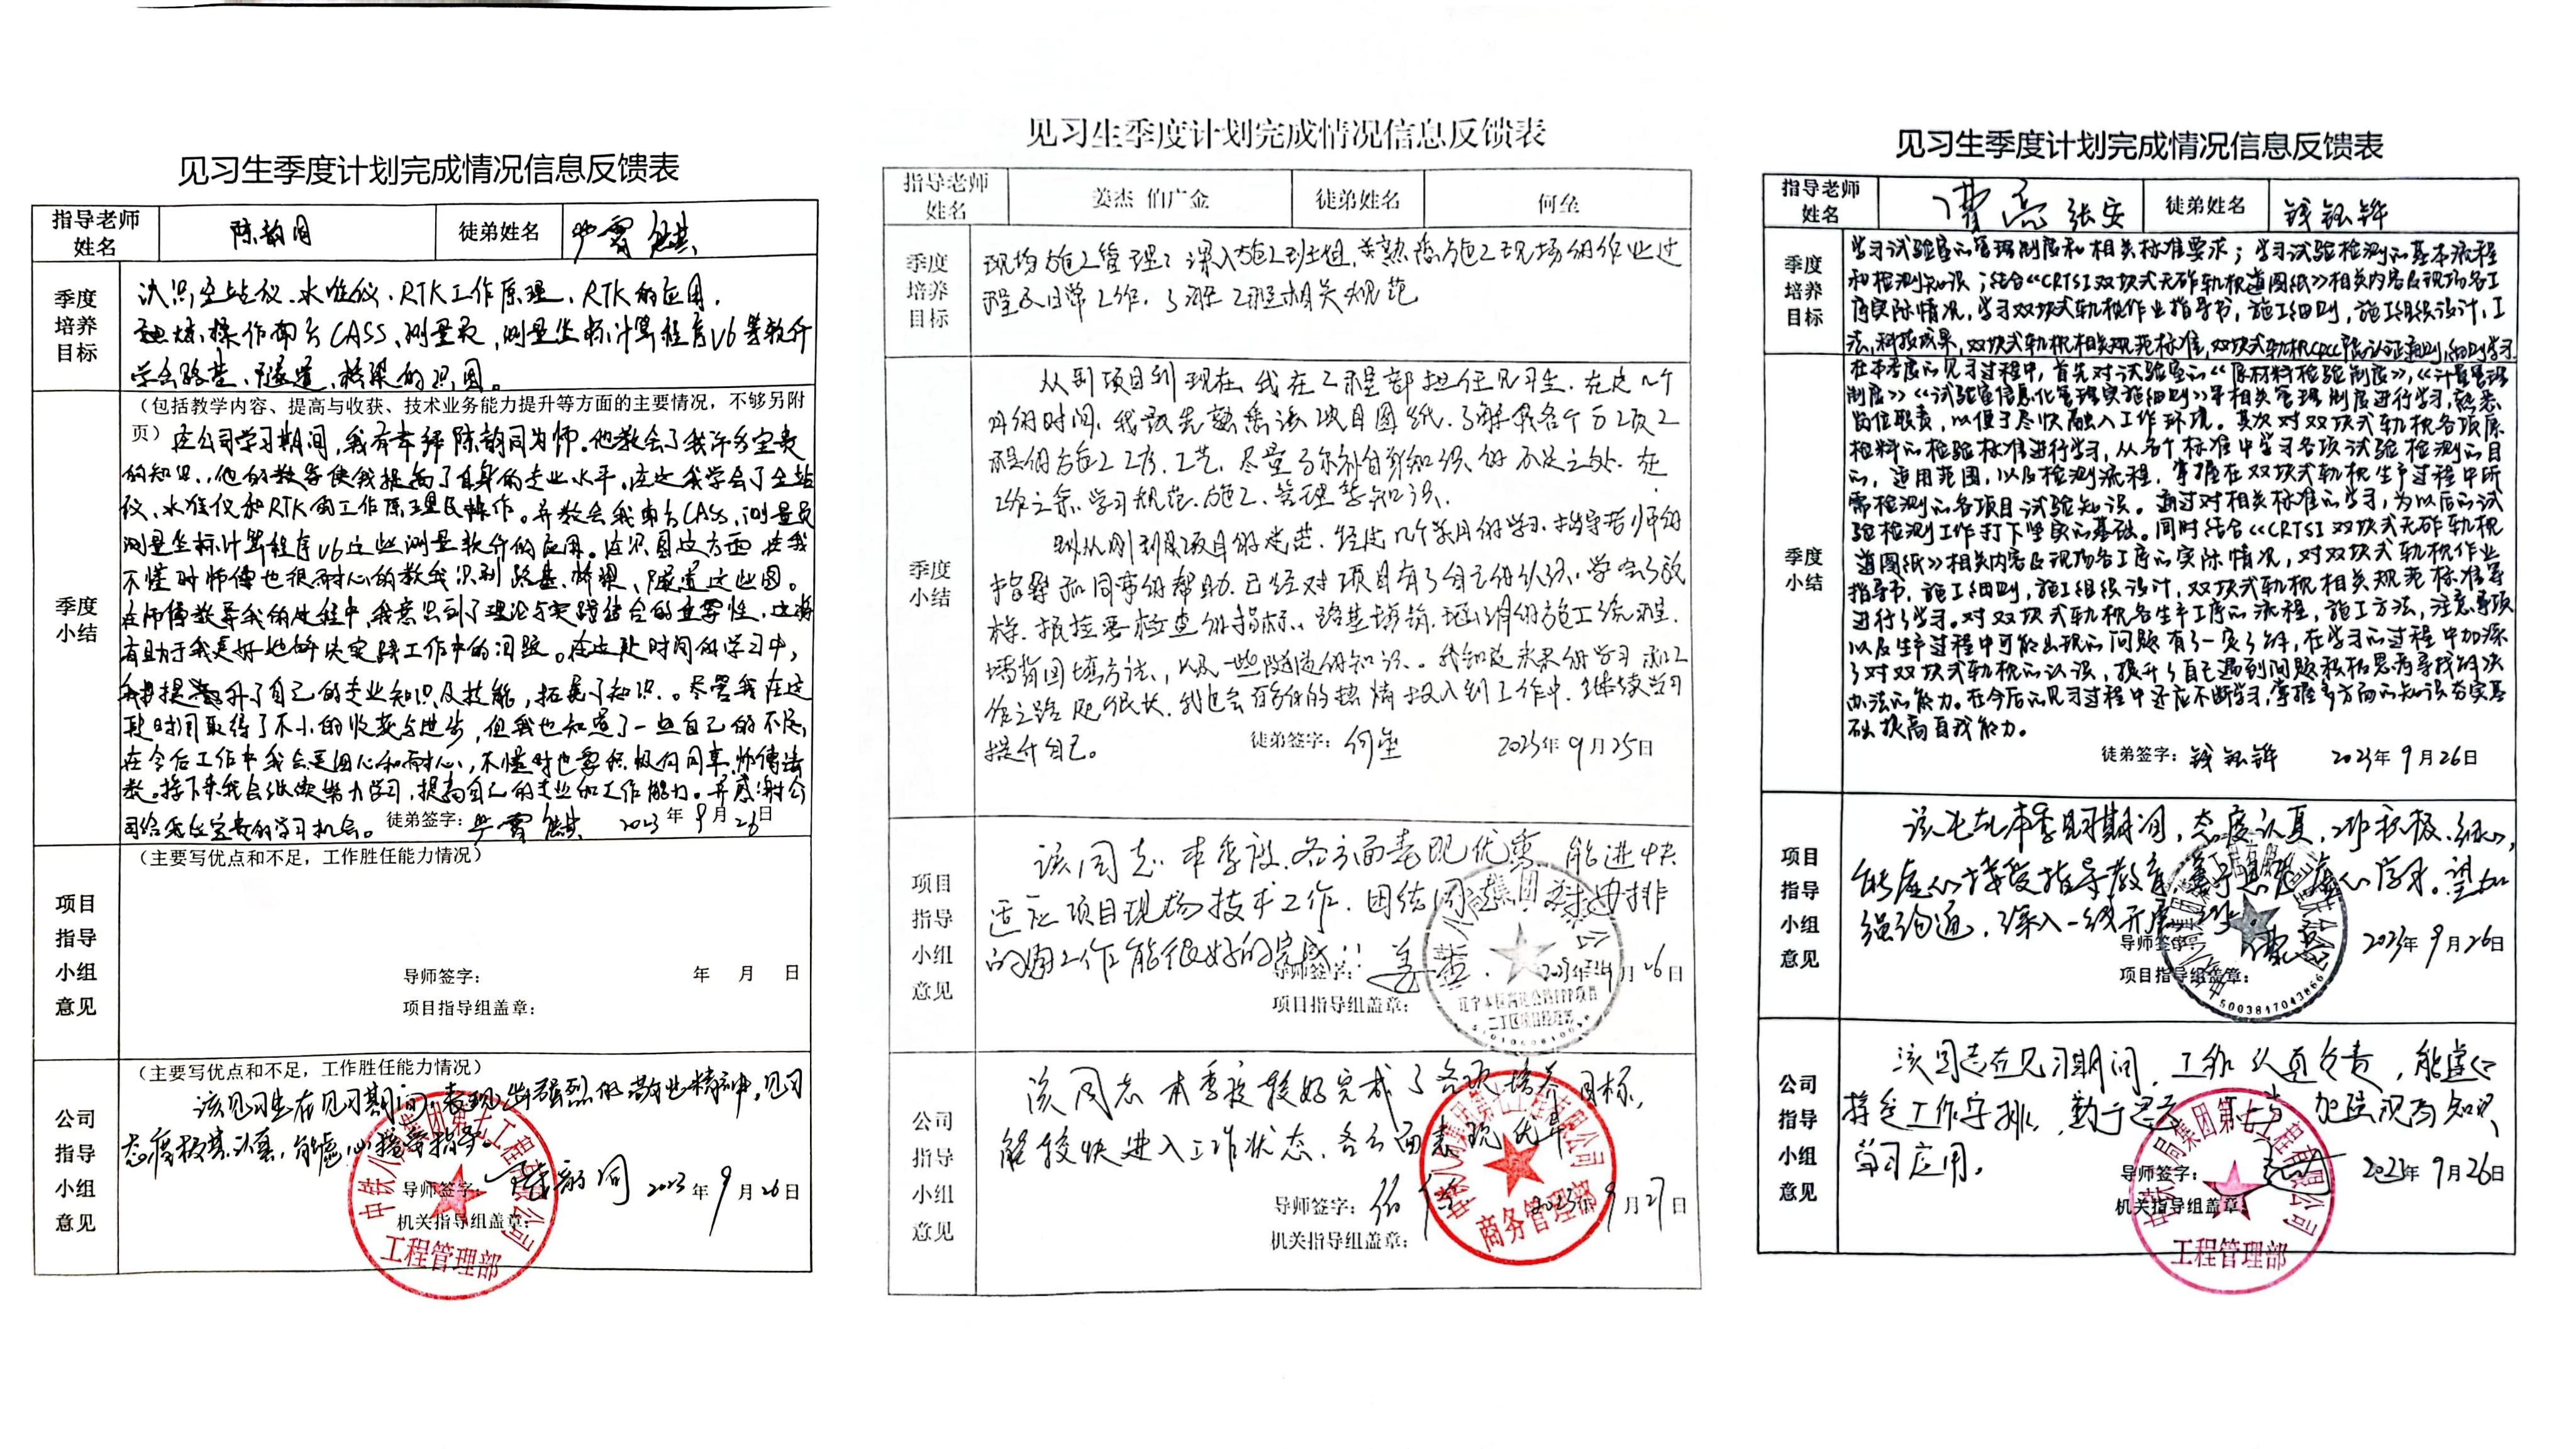 见习生季度计划完成情况信息反馈表
指导老师
姓名
陈韵同
徒弟姓名
季度
培养
目标
认识全站仪、水准仪、RTK工作原理、RTK的应用。
熟炼操作南方CASS、测量员,测量坐标计算程序V6等软件
学会路基、隧道、桥梁的识图。
季度
小结
(包括教学内容、提高与收获、技术业务能力提升等方面的主要情况,不够另附
页) 在公司学习期间,我有幸拜陈韵同为师。他教会了我许多宝贵
的知识,他的教导使我提高了自身的专业水平。在这我学会了全站
仪、水准仪和RTK的工作原理及操作。并教会我南方CASS,测量员
测量坐标计算程序V6这些测量软件的应用。在识图这方面在我
不懂时师傅也很耐心的教我识别路基、桥梁、隧道这些图。
在师傅教导我的过程中,我意识到了理论与实践结合的重要性,这将
有助于我更好地解决实际工作中的问题。在这段时间的学习中,
提升了自己的专业知识及技能,拓展了知识。尽管我在这
段时间取得了不小的收获与进步,但我也知道了一些自己的不足,
在今后工作中我会更细心和耐心,不懂时也要积极向同事、师傅请
教。接下来我会继续努力学习,提高自己的专业和工作能力。并感谢公
司给我这宝贵的学习机会。 徒弟签字: 2023年9月26日
项目
指导
小组
意见
(主要写优点和不足,工作胜任能力情况)
导师签字: 年 月 日
项目指导组盖章:
公司
指导
小组
意见
(主要写优点和不足,工作胜任能力情况)
该见习生在见习期间,表现出强烈的敬业精神,见习
态度极其认真,能虚心接受指导。
导师签字: 陈韵同 2023年9月26日
机关指导组盖章:
中铁八局集团第七工程有限公司
工程管理部
见习生季度计划完成情况信息反馈表
指导老师
姓名
姜杰 伯广金
徒弟姓名
何垒
季度
培养
目标
现场施工管理:深入施工班组,并熟悉施工现场的作业过
程及日常工作,了解工程相关规范
季度
小结
从到项目到现在,我在工程部担任见习生。在这几个
月的时间,我首先熟悉该项目图纸。了解其各个分项工
程的施工工序、工艺,尽量弥补自身知识的不足之处。在
工作之余,学习规范、施工、管理等知识。
从刚到项目的迷茫,经过几个月的学习,指导老师的
指导和同事的帮助,已经对项目有了自己的认识,学会了放
样、报检要检查的指标,路基填筑、涵的施工流程,
墙背回填方法,以及一些隧道的知识。我知道未来的学习和工
作之路还很长,我也会百倍的热情投入到工作中,继续学习
提升自己。 徒弟签字: 何垒 2023年9月25日
项目
指导
小组
意见
该同志本季度各方面表现优秀,能进快
适应项目现场技术工作,团结同志,对安排
的工作能很好的完成!
导师签字: 姜杰 2023年9月26日
项目指导组盖章:
公司
指导
小组
意见
该同志本季度较好完成了各项培养目标,
能较快进入工作状态,各方面表现优异
导师签字: 2023年9月27日
机关指导组盖章:
中铁八局集团第七工程有限公司
商务管理部
见习生季度计划完成情况信息反馈表
指导老师
姓名
曹亮 张安
徒弟姓名
钱钰锌
季度
培养
目标
学习试验室的管理制度和相关标准要求;学习试验检测的基本流程
和检测知识;结合《CRTSI双块式无砟轨枕通图纸》相关内容及现场各工
序实际情况,学习双块式轨枕作业指导书,施工细则,施工组织设计,工
法,科技成果,双块式轨枕相关规范标准,双块式轨枕CRCC认证通则,细则学习
季度
小结
在本季度的见习过程中,首先对试验室的《原材料检验制度》,《计量管理
制度》《试验室信息化管理实施细则》等相关管理制度进行学习,熟悉
岗位职责,以便于尽快融入工作环境。其次对双块式轨枕各项原
检料的检验标准进行学习,从各个标准中学习各项试验检测的目
的,适用范围,以及检测流程,掌握在双块式轨枕生产过程中所
需检测的各项目试验知识。通过对相关标准的学习,为以后的试
验检测工作打下坚实的基础。同时结合《CRTSI双块式无砟轨枕
通图纸》相关内容及现场各工序的实际情况,对双块式轨枕作业
指导书,施工细则,施工组织设计,双块式轨枕相关规范标准等
进行了学习。对双块式轨枕各生产工序的流程,施工方法,注意事项
以及生产过程中可能出现的问题有了一定了解,在学习的过程中加深
了对双块式轨枕的认识,提升了自己遇到问题积极思考寻找解决
办法的能力。在今后的见习过程中还应不断学习,掌握多方面的知识夯实基
础提高自我能力。
徒弟签字: 钱钰锌 2023年9月26日
项目
指导
小组
意见
该生在本季见习期间,态度认真,工作积极、细心,
能虚心接受指导教育,善于思考,虚心学习。望加
强沟通,深入一线开展工作
导师签字: 曹亮 2023年9月26日
项目指导组盖章:
5003817043866
公司
指导
小组
意见
该同志在见习期间,工作认真负责,能虚心
接受工作安排,勤于思考, 加强现场知识
学习应用。
导师签字: 2023年9月26日
机关指导组盖章:
中铁八局集团第七工程有限公司
工程管理部